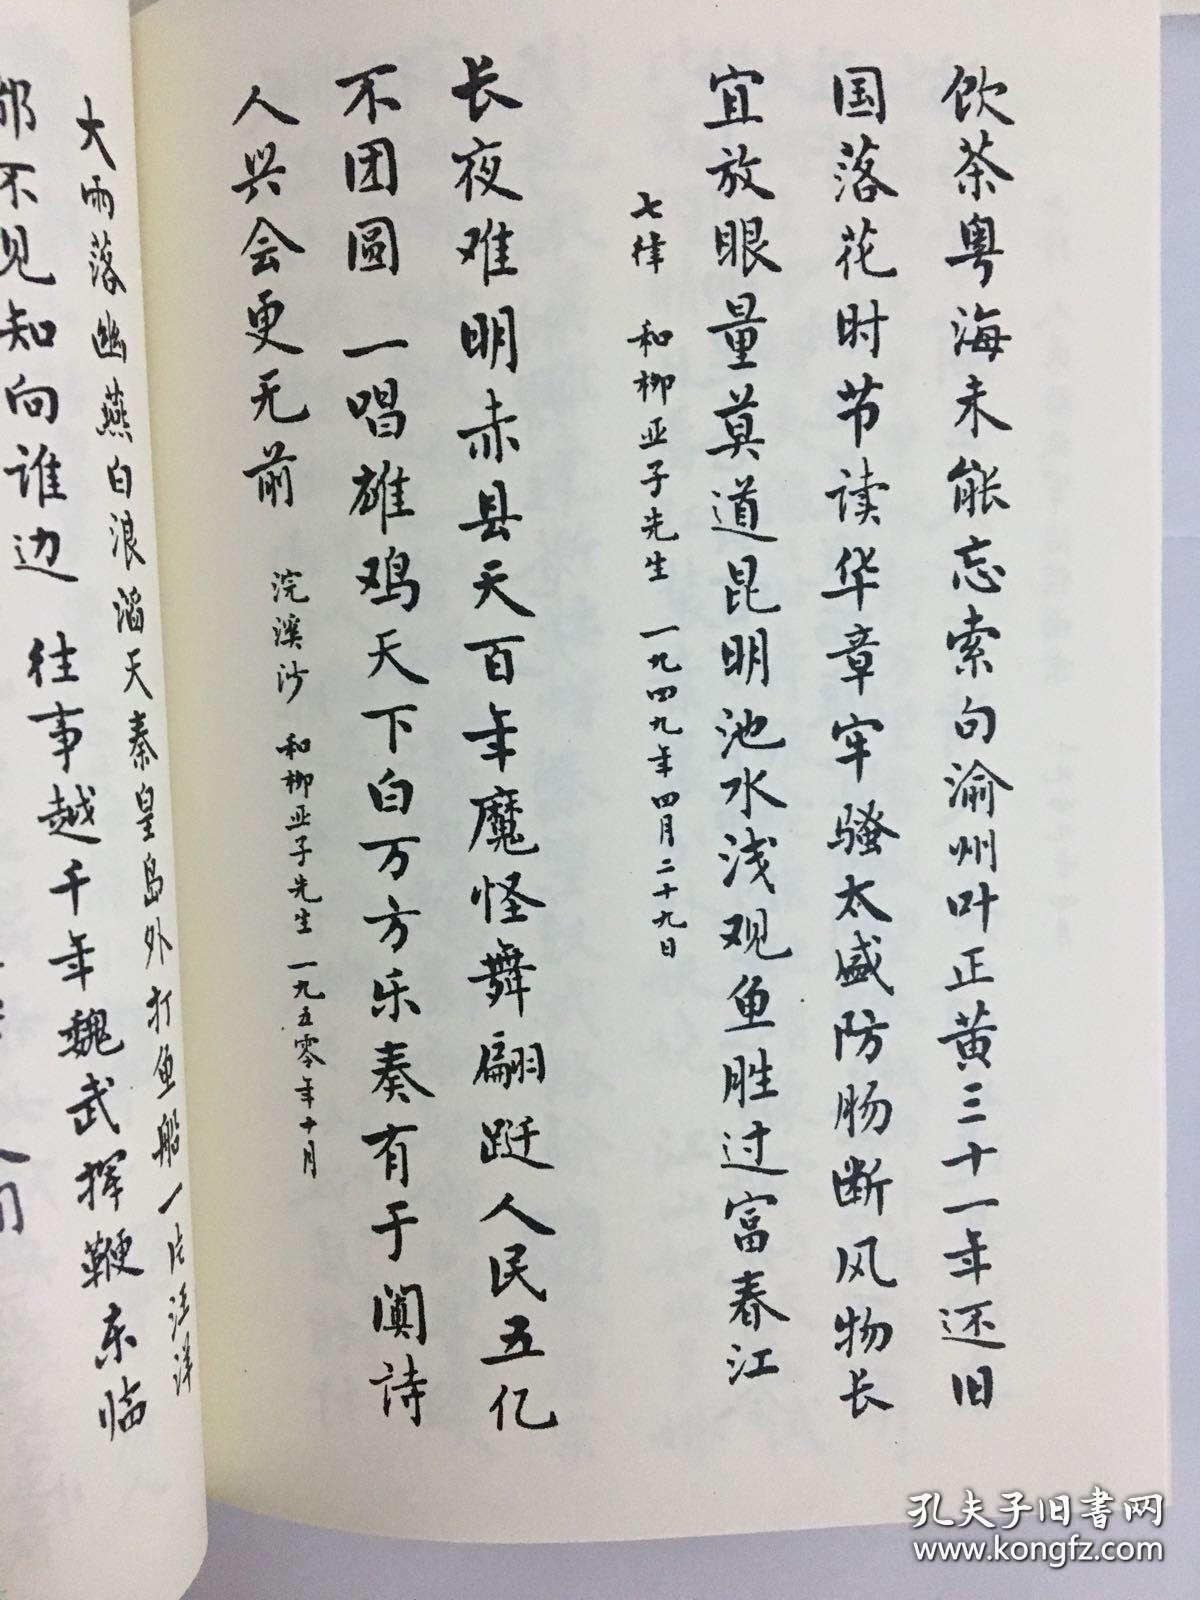 饮茶粤海未能忘索句渝州叶正黄三十一年还旧
国落花时节读华章牢骚太盛防肠断风物长
宜放眼量莫道昆明池水浅观鱼胜过富春江
七律 和柳亚子先生 一九四九年四月二十九日
长夜难明赤县天百年魔怪舞翩跹人民五亿
不团圆 一唱雄鸡天下白万方乐奏有于阗诗
人兴会更无前 浣溪沙 和柳亚子先生 一九五零年十月
大雨落幽燕白浪滔天秦皇岛外打鱼船一片汪洋
都不见知向谁边 往事越千年魏武挥鞭东临
孔夫子旧书网
www.kongfz.com